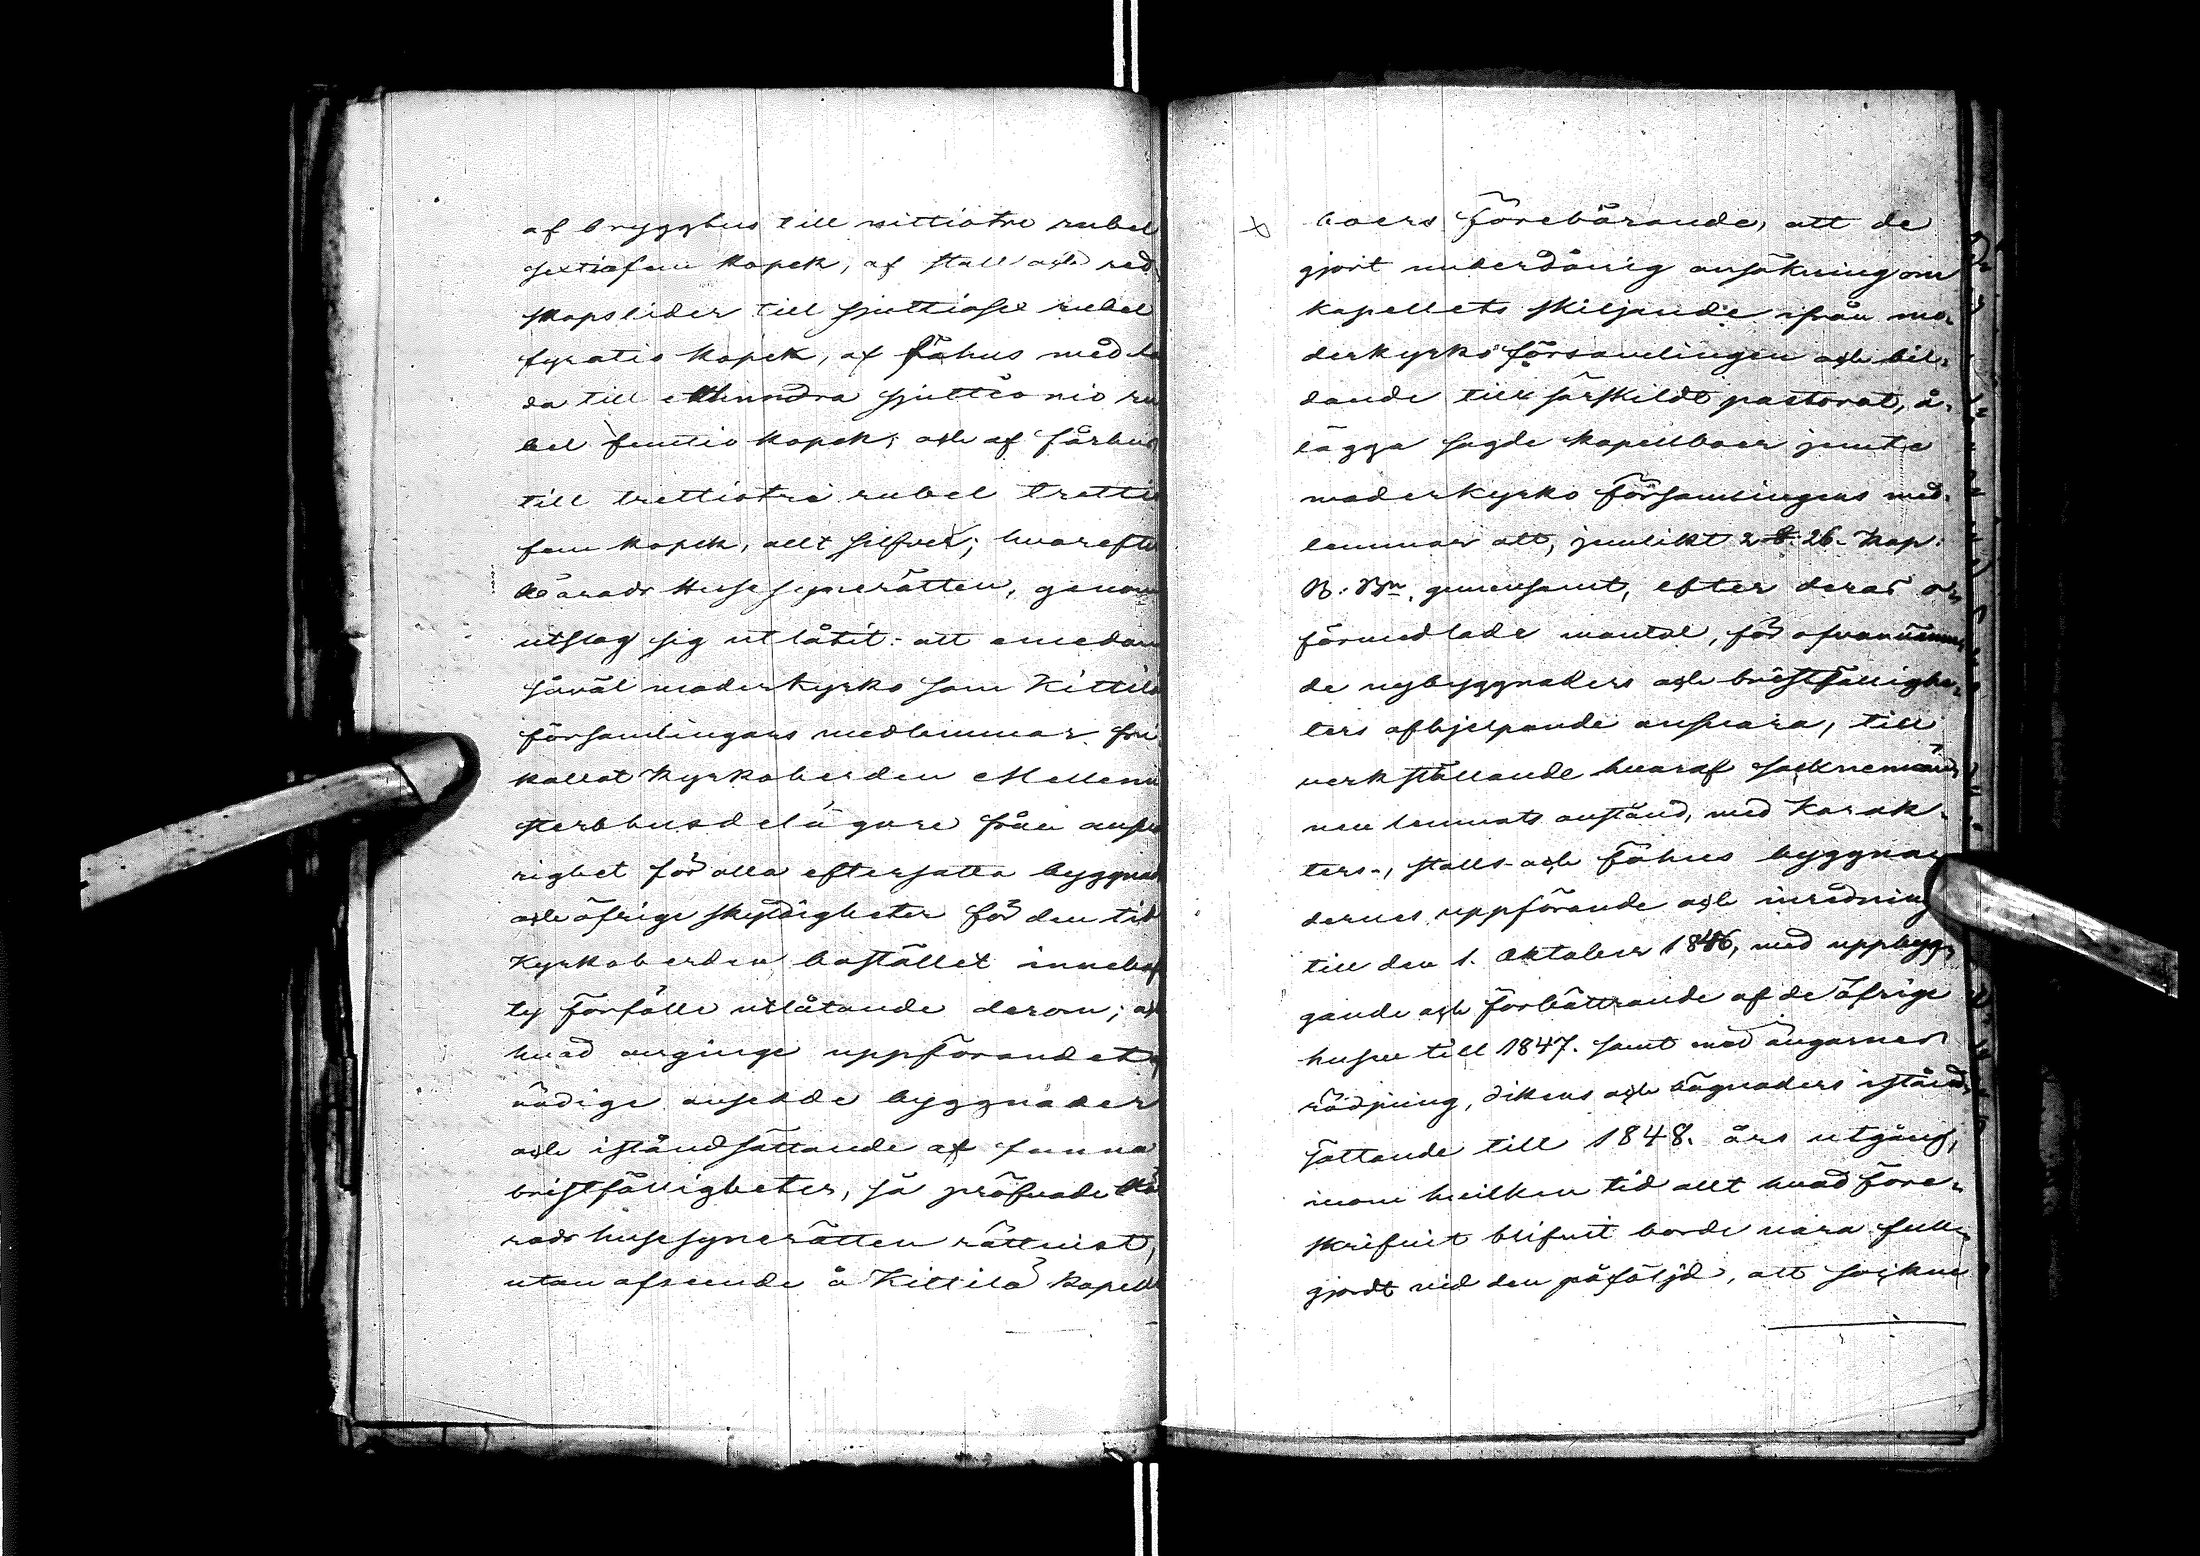 af brygghus till nittiotre rubel
sextiofem kopek, af stall och red
skapslider till sjuttiosex rubel
fyratio kopek, af fähus med la
da till etthundra sjuttio nio ru
bel femtio kopek; och af fårhus
till trettiotre rubel trettio
fem kopek, allt silfver; hvarefter
Härads Husesynerätten, genom
utslag sig utlåtit: att emedan
såväl moderkyrko som Kittilä
församlingars medlemmar fri
kallat Kyrkoherden Mellenii
sterbhusdelägare från ansva
righet för alla eftersatta byggnads
och öfrige skyldigheter för den tid
Kyrkoherden bostället innehaft
ty förfölle utlåtande derom; och
hvad anginge uppförandet af
nödige ansedde byggnader
och iståndsättande af funna
bristfälligheter, så pröfvade Hä
rads husesynerätten rättvist,
utan afseende å Kittilä kapell
boers förebärande, att de
gjort underdånig ansökning om
kapellets skiljande ifrån mo-
derkyrko församlingen och bil-
dande till särskildt pastorat, å-
lägga sagde kapellboer jemte
moderkyrko församlingens med-
lemmar att, jemlikt 2 §. 26. Kap.
B. Bn, gemensamt, efter deras o-
förmedlade mantal, för ofvannämn-
de nybyggnaders och bristfällighe-
ters afhjelpande ansvara, till
verkställande hvaraf socknemän-
nen lemnats anstånd, med Karak-
ters-, stalls- och fähus byggna-
dernes uppförande och inredning
till den 1. Oktober 1846, med uppbyg-
gande och förbättrande af de öfrige
husen till 1847. samt med ängarnes
rödjning, dikens och hägnaders istånd-
sättande till 1848. års utgång,
inom hvilken tid allt hvad före-
skrifvit blifvit borde vara full-
gjordt vid den påföljd, att sockne